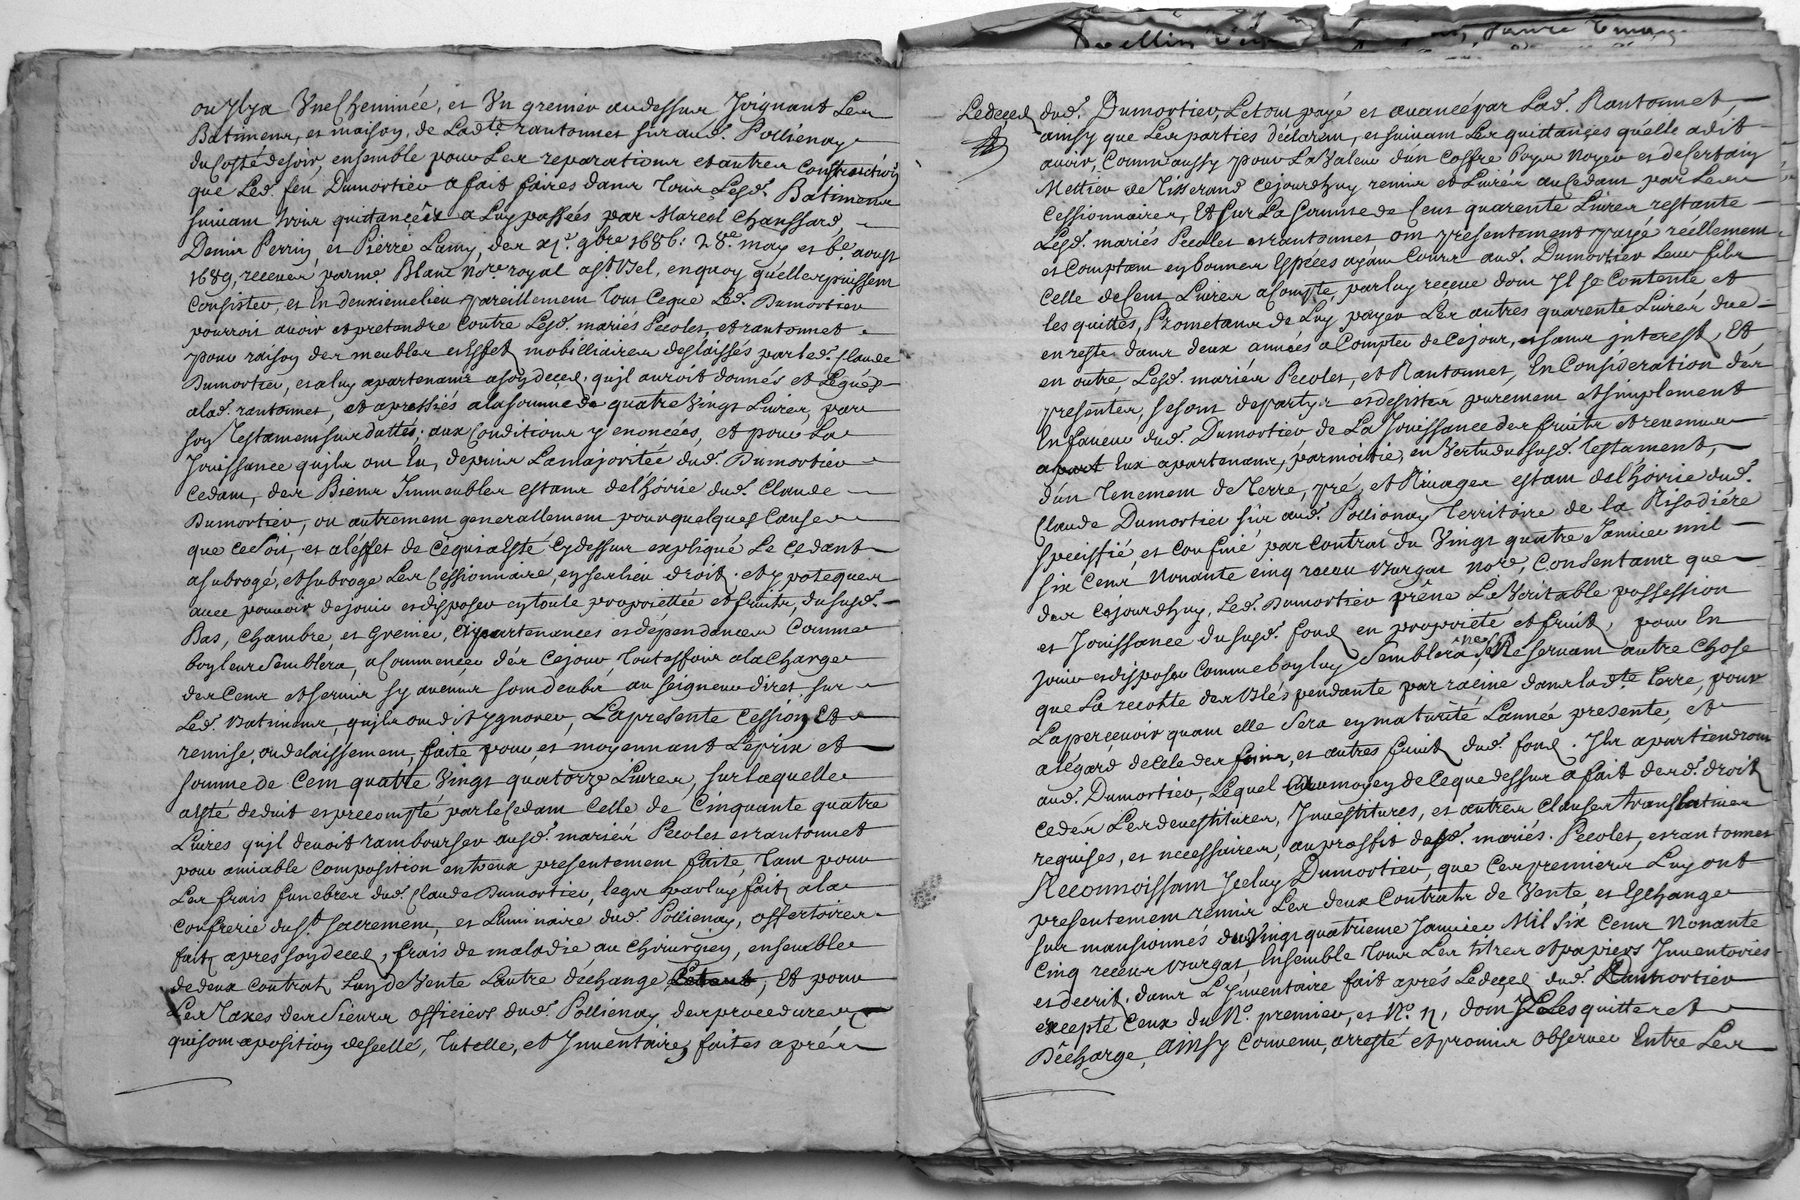 ou Il y a Une Cheminée, et Un grenier audessus Joignant Les
Batimens, et maison, de Ladte rantonnet sur aud. Pollienay
du Costé de soir, ensemble pour Les reparations et autres Constructions
que Led. feu Dumortier a fait faires dans Tous Lesd. Batimens
suivant trois quittances a Luy passées par Marcol Chaussard,
Denis Perrin, et Pierre Lamy, des xj.e 9bre 1686: 28.e may et 6.e aoust
1689, receues par me. Blanc Nore royal a St Bel, en quoy quelles puissent
Consister, et En deuxieme lieu pareillement Tout Ceque Led. Dumortier
pourroit avoir et pretendre Contre Lesd. mariés Pecolet, et rantonnet
pour raison des meubles et Effets mobilliaires deslaissés par led. Claude
Dumortier, et a luy apartenant a son deces, quil auroit donnés et Légués
a lad. rantonnet, et apressiés a la somme de quatre Vingt Livres, par
son Testament sus datté; aux Conditions y enoncées, et pour La
Jouissance quils ont Eu, depuis La majoritée dud. Dumortier
Cedant, des Biens Immeubles estans del hoirie dud. Claude
Dumortier, ou autrement generallement pour quelques Cause
que ce soit, et a lesset de ce qui a Esté Cy dessus expliqué Le Cedant
a subrogé, et subroge Les Cessionnaire, en ses lieu droit, et ypoteques
avec pouvoir de jouir et disposer en toute propriettée et fruits, du susd.
Bas, Chambre, et Grenier, apartenances et dépendances Comme
bon leur Semblera, a Commencer dés Ce jour, Touteffois a la Charge
des Cens et servis sy aucuns sont deubs au seigneur diret sur
Led. Batimens, quils ont dit Ygnorer, La presente Cession, Et
remise, ou delaissement, faite pour, et moyennant Le prix et
somme de Cent quatre Vingt quatorze Livres, sur laquelle
a Esté deduit et precompté par le Cedant Celle de Cinquante quatre
Livres quil devoit rambourser ausd. mariés Pecolet et rantonnet
pour amiable Composition entreux presentement faite, Tant pour
Les frais funebres dud. Claude Dumortier, legs par luy fait a la
Confrerie du St Sacrement, et Luminaire dud. Pollienay, offertoires
fait apres son deces, frais de maladie au Chirurgien, ensemble
de deux Contrat Lun de Vente Lautre déchange, Et pour
Les Taxes des Sieurs officiers dud. Pollienay des procedures
qui sont aposition de scellé, Tutelle, et Inventaire, faites aprés
Le deces dud. Dumortier, Le tout payé et avancé par Lad. Rantonnet,
ainsy que Les parties déclarent, et suivant Les quittances quelle a dit
avoir, Comm aussy pour La Valeur dun Coffre Boys Noyer et de Certain
Mettier de Tisserand Cejourdhuy remis et Livrés au Cedant par Les
Cessionnaires, Et Sur La Somme de Cent quarente Livres restante
Lesd. mariés Pecolet et rantonnet ont presentement payé réellement
et Comptant en bonnes Espèces ayant Cours aud. Dumortier Leur fils
Celle de Cent Livres a Compte, par luy receue dont Il se Contente et
les quittes, Prometans de Luy payer Les autres quarente Livres due
en reste dans deux années a Compter de Cejour, et sans interest, Et
en outre Lesd. mariés Pecolet, et Rantonnet, En Considération des
presentes, se sont departys et desister purement et simplement
En faveur dud. Dumortier, de La Jouissance des fruits et revenus
Eux apartenans, par moitié, en Vertu du susd. Testament,
dun Tenement de Terre, pré, et Rivages estant del hoirie dud.
Claude Dumortier sur aud. Pollionay Territoire de la Risodiére
speciffié, et Confiné par contrat du Vingt quatre Janvier mil
six Cens Nonante Cinq receu Burgat Nore, Consentans que
des Cejourdhuy, Led. Dumortier prêne Le Veritable possession
et Jouissance du susd. fond en propriété et fruits, pour En
jouir et disposer Comme bon luy Semblera, ne se Reservant autre Chose
que La recolte des Blés pendante par racine dans lad.te Terre, pour
La percevoir quant elle Sera en maturité Lannée presente, et
a légard de Cele des foins, et autres fruits dud. fond. Ils apartiendront
aud. Dumortier, Lequel Au moyen de Ceque dessus a fait desd. droits
cedés Les devestitures, Investitures, et autres Clauses translatives
requises, et necessaires, au proffit desd. mariés. Pecolet, et rantonnet
Reconnoissant Iceluy Dumortier, que Ces premiers Luy ont
presentement remis Les deux Contrats de Vente, et Eschange
sus mansionnés du Vingt quatrieme Janvier Mil Six Cens Nonante
Cinq receus Burgat, Ensemble Tous Les titres et papiers Inventoriés
et décrit dans LInventaire fait aprés Le deces dud. Dumortier
excepté Ceux du No. premier, et No. 11, dont Il Les quitter et
Décharge, Ainsy Convenu, arresté et promis observer Entre Les